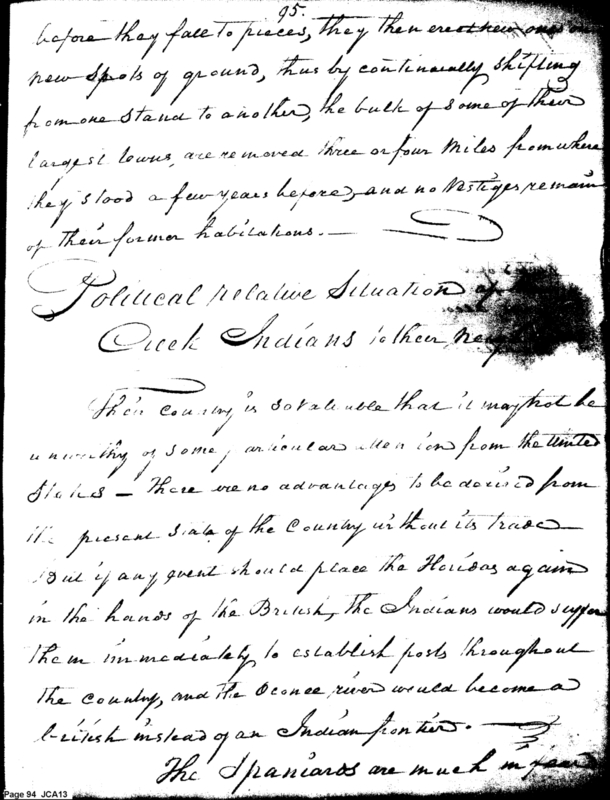 95.
before they fall to pieces, they then erect new ones on
new spots of ground, thus by continually shifting
from one stand to another, the bulk of some of their
largest towns, are removed three or four Miles from where
they stood a few years before, and no Vestiges remain
of their former habitations. —
Political relative Situation of the
Creek Indians to their
Their Country is so Valuable that it may not be
unworthy of some particular attention from the United
States — There are no advantages to be derived from
the present State of the Country without its trade —
But if any event should place the Floridas again
in the hands of the British, the Indians would suffer
them immediately to establish posts throughout
the country, and the Oconee river would become a
british instead of an Indian frontier. —
The Spaniards are much in fear
Page 94 JCA13